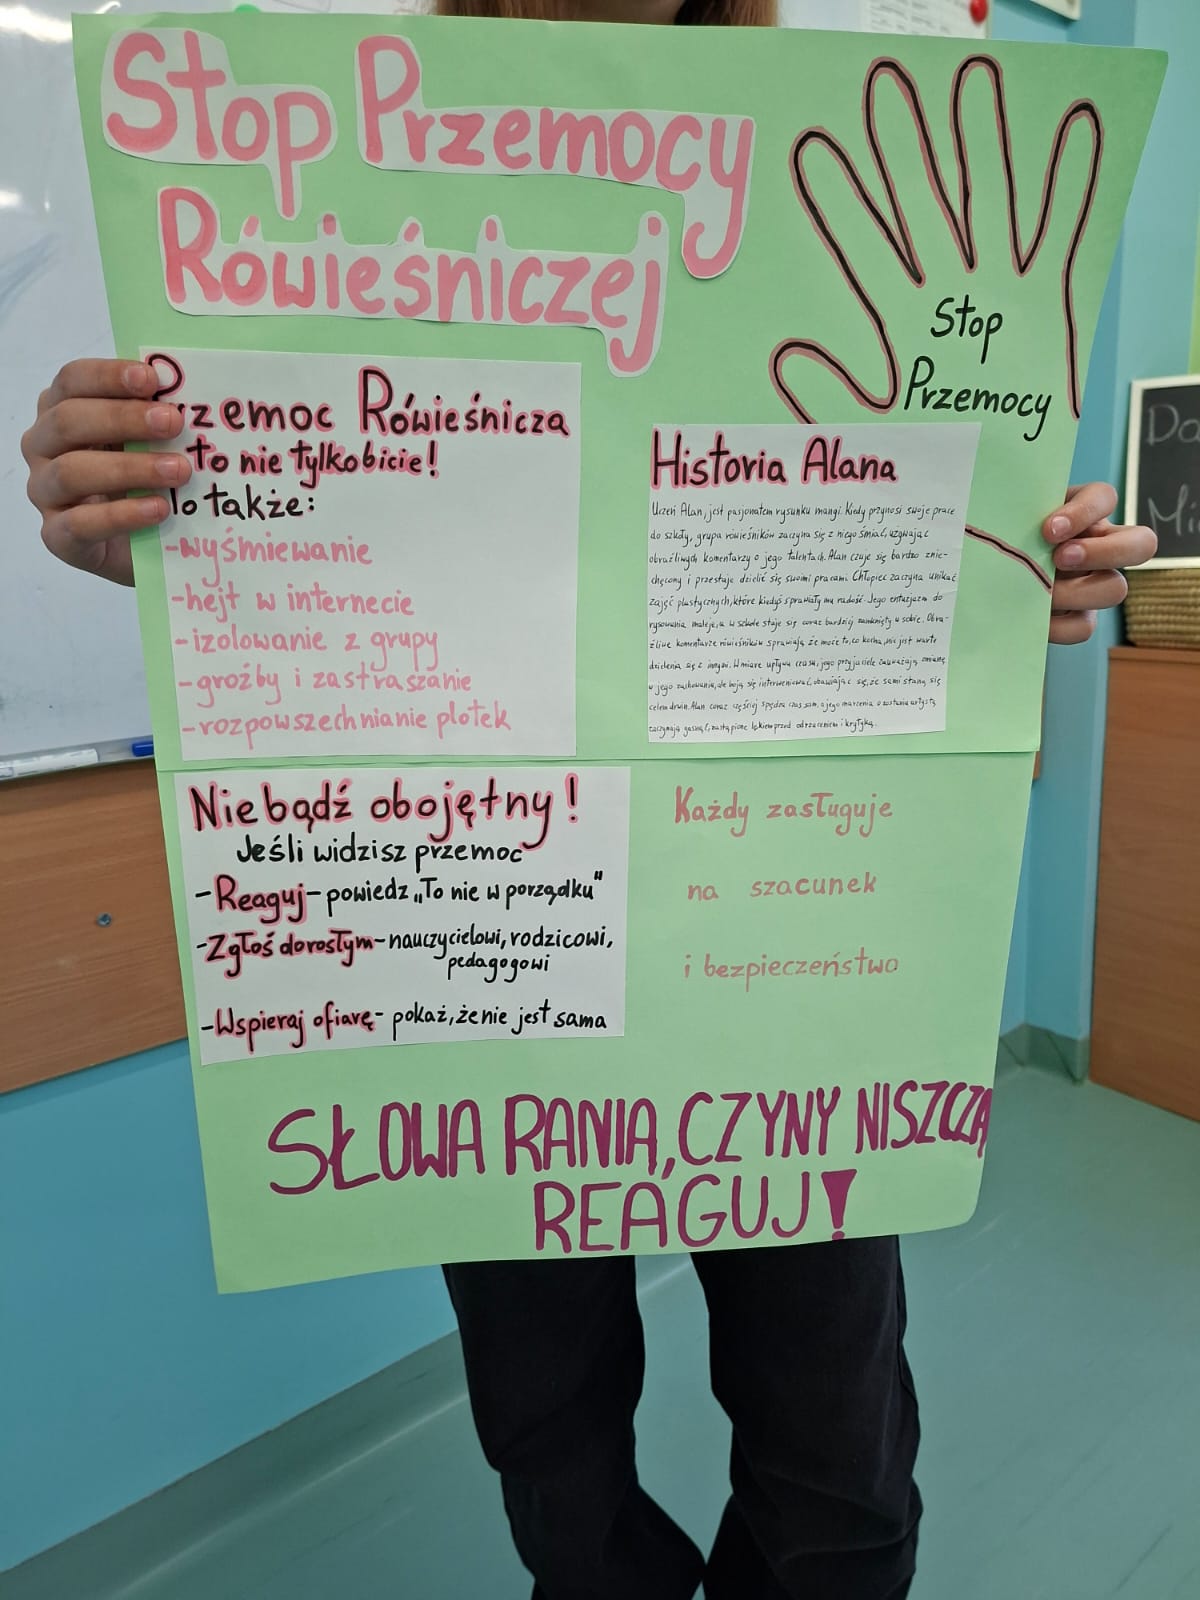 Stop Przemocy
Rówieśniczej
Stop
Przemocy
Przemoc Rówieśnicza
to nie tylko bicie!
To także:
-wyśmiewanie
-hejt w internecie
-izolowanie z grupy
-groźby i zastraszanie
-rozpowszechnianie plotek
Historia Alana
Uczeń Alan, jest pasjonatem rysunku mangi. Kiedy przynosi swoje prace
do szkoły, grupa rówieśników zaczyna się z niego śmiać, używając
obraźliwych komentarzy o jego talentach. Alan czuje się bardzo znie-
chęcony i przestaje dzielić się swoimi pracami. Chłopiec zaczyna unikać
zajęć plastycznych, które kiedyś sprawiały mu radość. Jego entuzjazm do
rysowania maleje, a w szkole staje się coraz bardziej zamknięty w sobie. Obra-
źliwe komentarze rówieśników sprawiają że może to, co kocha, nie jest warte
dzielenia się z innymi. W miarę upływu czasu, jego przyjaciele zauważają zmianę
w jego zachowaniu, ale boją się interweniować, obawiając się, że sami staną się
celem drwin. Alan coraz częściej spędza czas sam, a jego marzenia o zostaniu artystą
zaczynają gasnąć, zastąpione lękiem przed odrzuceniem i krytyką.
Nie bądź obojętny!
Jeśli widzisz przemoc
-Reaguj-powiedz „To nie w porządku"
-Zgłoś dorosłym-nauczycielowi, rodzicowi,
pedagogowi
-Wspieraj ofiarę- pokaż, że nie jest sama
Każdy zasługuje
na szacunek
i bezpieczeństwo
SŁOWA RANIĄ, CZYNY NISZCZĄ
REAGUJ!